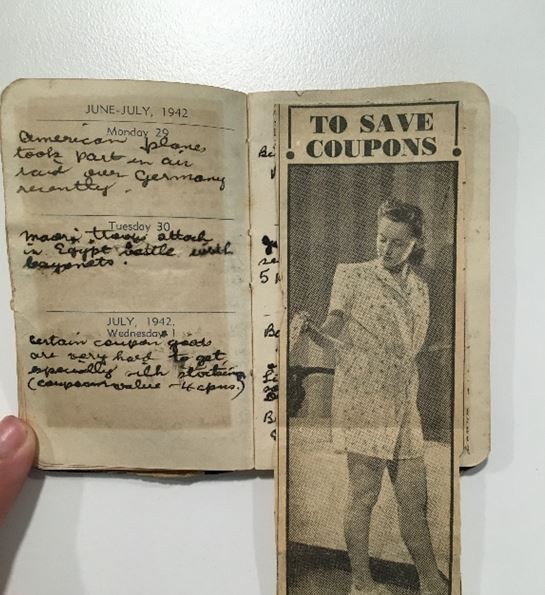 JUNE-JULY, 1942
Monday 29
american planes
took part in air
raid over Germany
recently.
Tuesday 30
maori troops attack
in Egypt battle with
bayonets.
JULY, 1942.
Wednesday 1
certain coupon goods
are very hard to get,
especially silk stockings
(coupon value - 4 cpns.)
TO SAVE
COUPONS